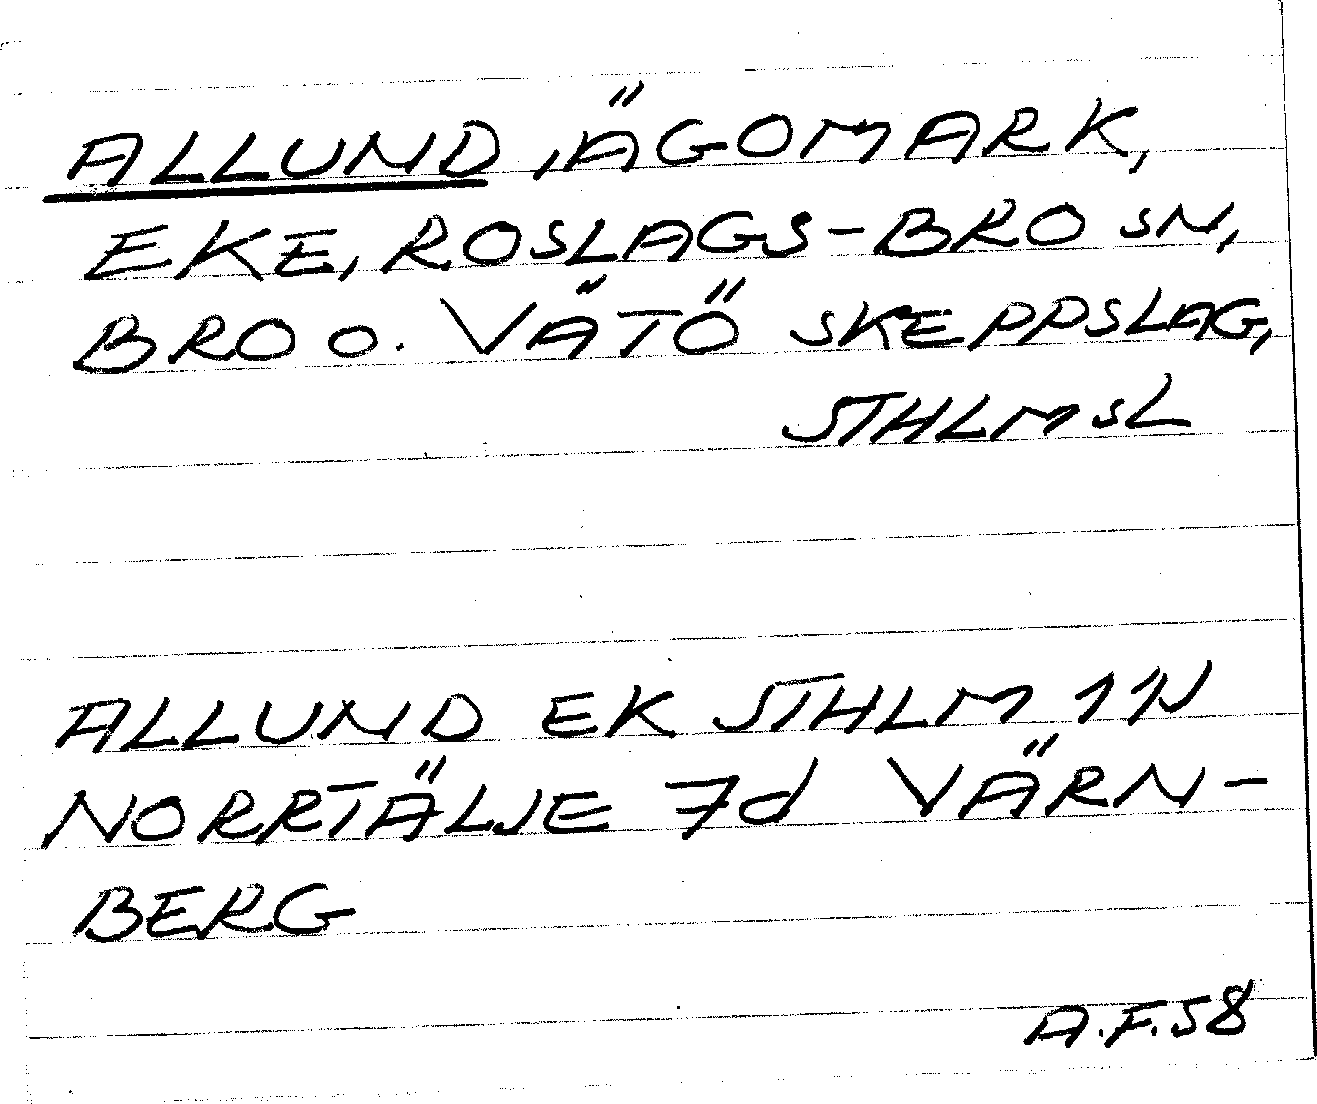 ALLUND, ÄGOMARK,
EKE, ROSLAGS-BRO SN,
BRO O. VÄTÖ SKEPPSLAG,
STHLMSL
ALLUND EK STHLM 11N
NORRTÄLJE 7d VÄRN-
BERG
A.F.58